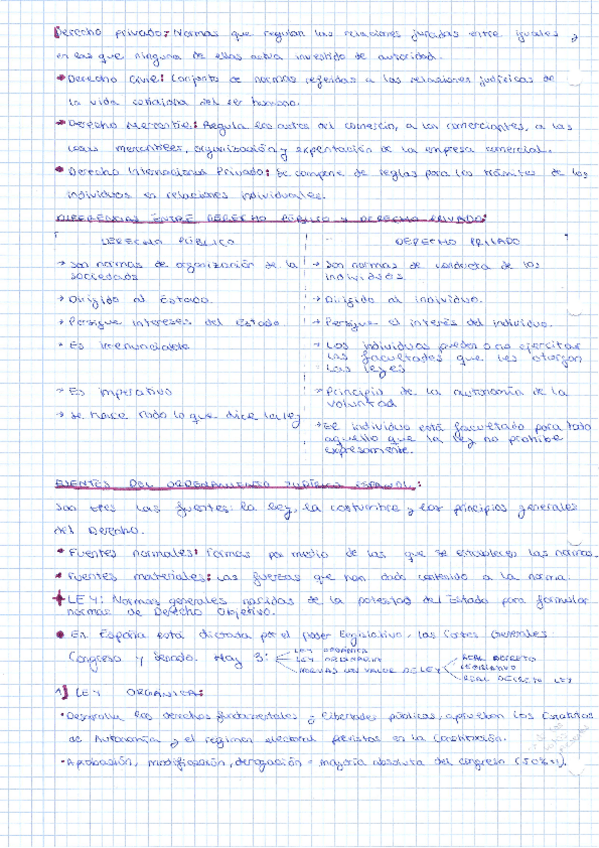 Derecho privado: Normas que regulan las relaciones jurídicas entre iguales y
en las que ninguna de ellas actúa investido de autoridad.
• Derecho Civil: Conjunto de normas referidas a las relaciones jurídicas de
la vida cotidiana del ser humano.
• Derecho Mercantil: Regula los actos del comercio, a los comerciantes, a las
cosas mercantiles, organización y explotación de la empresa comercial.
• Derecho Internacional Privado: Se compone de reglas para los trámites de los
individuos en relaciones individuales.
DIFERENCIAS ENTRE DERECHO PÚBLICO Y DERECHO PRIVADO:
DERECHO PÚBLICO
→ Son normas de organización de la
sociedad
→ Dirigido al Estado.
→ Persigue intereses del Estado.
• Es irrenunciable
→ Es imperativo
→ Se hace todo lo que dice la ley
DERECHO PRIVADO
→ Son normas de conducta de los
individuos.
→ Dirigido al individuo.
→ Persigue el interés del individuo.
→ Los individuos pueden o no ejercitar
las facultades que les otorgan
las leyes
→ Principio de la autonomía de la
voluntad
→ El individuo está facultado para todo
aquello que la ley no prohíbe
expresamente.
FUENTES DEL ORDENAMIENTO JURÍDICO ESPAÑOL:
Son tres las fuentes: la ley, la costumbre y los principios generales
del Derecho.
• Fuentes normales: Formas por medio de las que se establecen las normas.
• Fuentes materiales: Las fuerzas que han dado contenido a la norma.
LEY: Normas generales nacidas de la potestad del Estado para formular
normas de Derecho Objetivo.
• En España está dictada por el poder legislativo, las Cortes Generales:
Congreso y Senado. Hay 3:
LEY ORGÁNICA
LEY ORDINARIA
NORMAS CON VALOR DE LEY
REAL DECRETO
LEGISLATIVO
REAL DECRETO LEY
1) LEY ORGÁNICA:
• Desarrolla los derechos fundamentales y libertades públicas, aprueban los Estatutos
de Autonomía y el régimen electoral previstos en la Constitución.
• Aprobación, modificación, derogación = mayoría absoluta del congreso (50%+1).